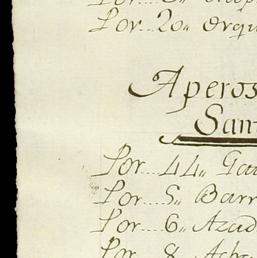 Por... 20,, orqu
Aperos
San
Por... 44,, Ga
Por... 5,, Barr
Por... 6,, Azad
Por... 8,, Acha